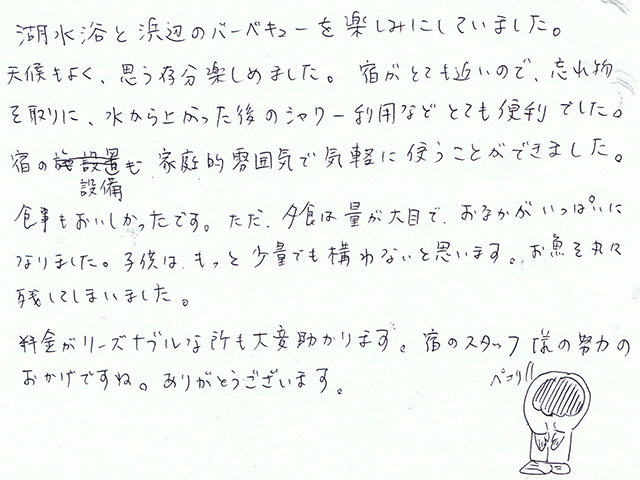 湖水浴と浜辺のバーベキューを楽しみにしていました。
天候もよく、思う存分楽しめました。宿がとても近いので、忘れ物
を取りに、水から上がった後のシャワー利用などとても便利でした。
宿の設備も家庭的雰囲気で気軽に使うことができました。
食事もおいしかったです。ただ、夕食は量が大目で、おなかがいっぱいに
なりました。子供は、もっと少量でも構わないと思います。お魚を丸々
残してしまいました。
料金がリーズナブルな所も大変助かります。宿のスタッフ様の努力の
おかげですね。ありがとうございます。
ペコリ